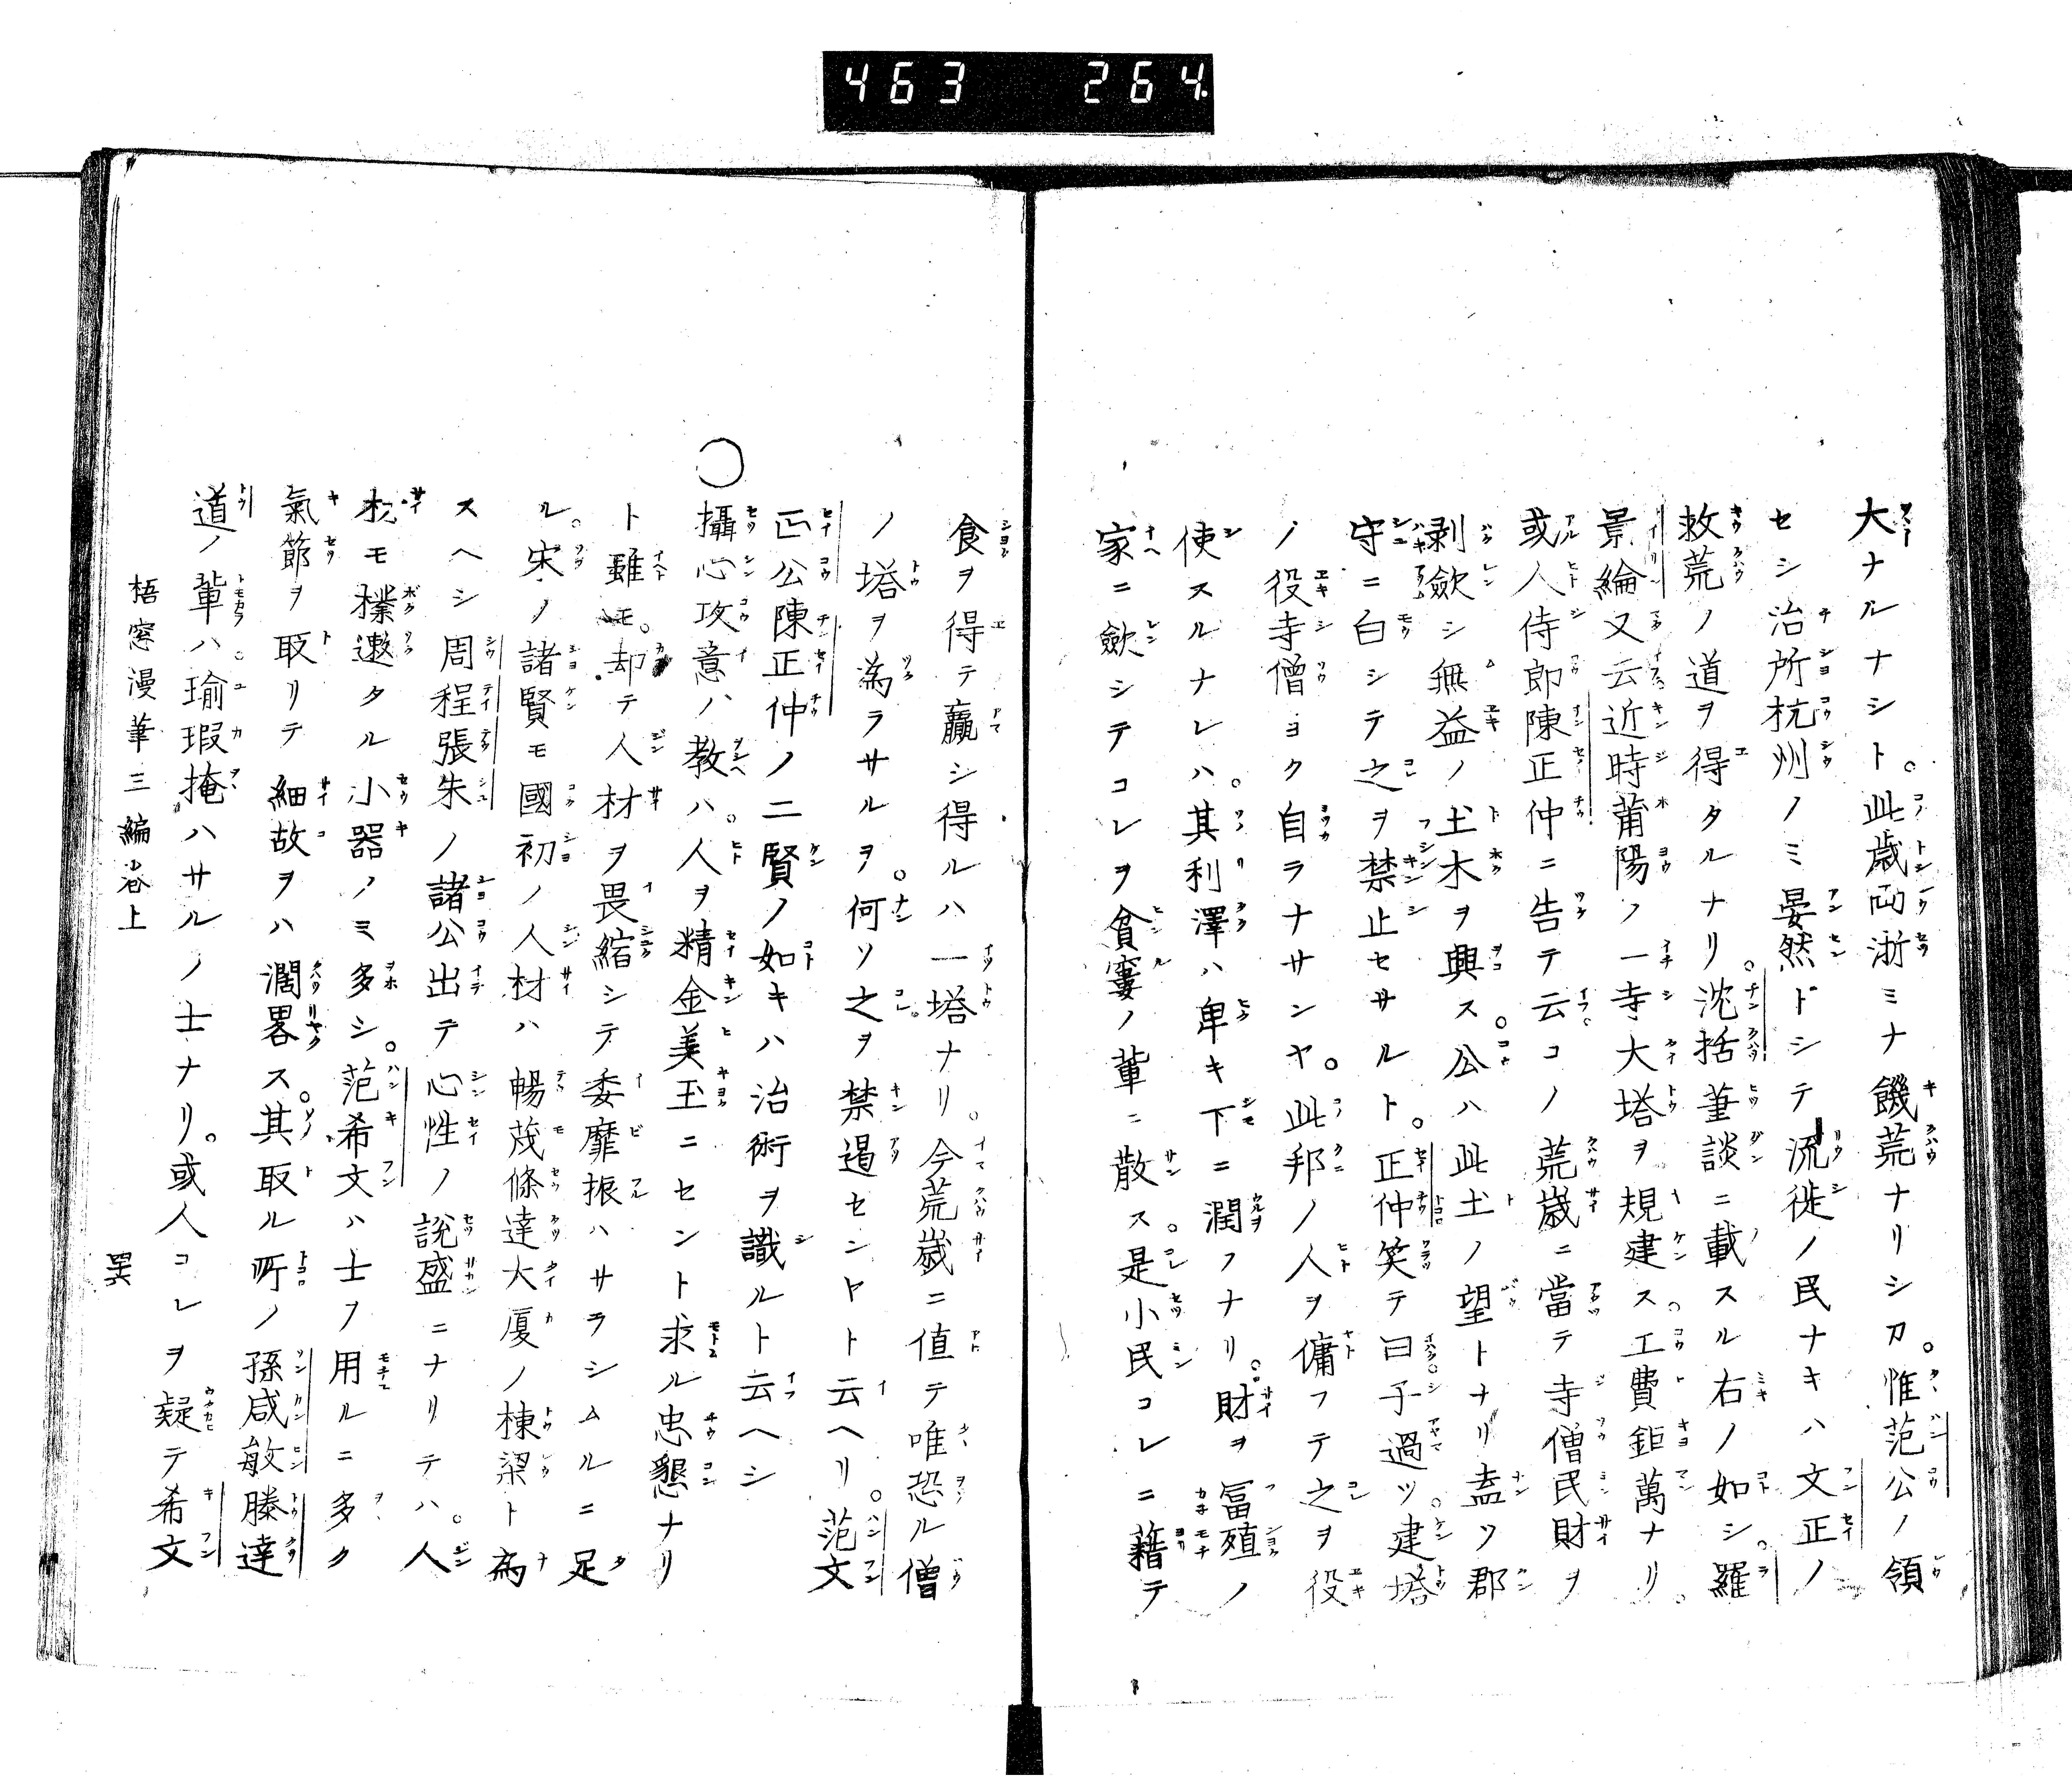 463 264.
大ナルナシト。此歳両浙ミナ饑荒ナリシカ。惟范公ノ領
セシ治所杭州ノミ晏然トシテ流徙ノ民ナキハ文正ノ
救荒ノ道ヲ得タルナリ。沈括筆談ニ載スル右ノ如シ。羅
景綸又云近時莆陽ノ一寺大塔ヲ規建ス。工費鉅萬ナリ。
或人侍郎陳正仲ニ告テ云コノ荒歳ニ當テ寺僧民財ヲ
剥歛シ無益ノ土木ヲ興ス。公ハ此土ノ望トナリ盍ソ郡
守ニ白シテ之ヲ禁止セサルト。正仲笑テ曰子過ツ。建塔
ノ役寺僧ヨク自ラナサンヤ。此邦ノ人ヲ傭フテ之ヲ役
使スルナレハ。其利澤ハ卑キ下ニ潤フナリ。財ヲ冨殖ノ
家ニ歛シテコレヲ貧窶ノ輩ニ散ス。是小民コレニ藉テ
食ヲ得テ贏シ得ルハ一塔ナリ。今荒歳ニ値テ唯恐ル僧
ノ塔ヲ為ラサルヲ。何ソ之ヲ禁遏セント云ヘリ。范文
正公陳正仲ノ二賢ノ如キハ治術ヲ識ルト云ヘシ
○攝心攻意ノ教ハ。人ヲ精金美玉ニセント求ル忠懇ナリ
ト雖モ。却テ人材ヲ畏縮シテ委靡振ハサラシムルニ足
ル。宋ノ諸賢モ國初ノ人材ハ暢茂條達大厦ノ棟梁ト為
スヘシ周程張朱ノ諸公出テ心性ノ説盛ニナリテハ。人
材モ樸遬タル小器ノミ多シ。范希文ハ士ヲ用ルニ多ク
氣節ヲ取リテ細故ヲハ濶畧ス。其取ル所ノ孫威敏滕達
道ノ輩ハ。瑜瑕掩ハサルノ士ナリ。或人コレヲ疑テ希文
梧窓漫筆三編巻上